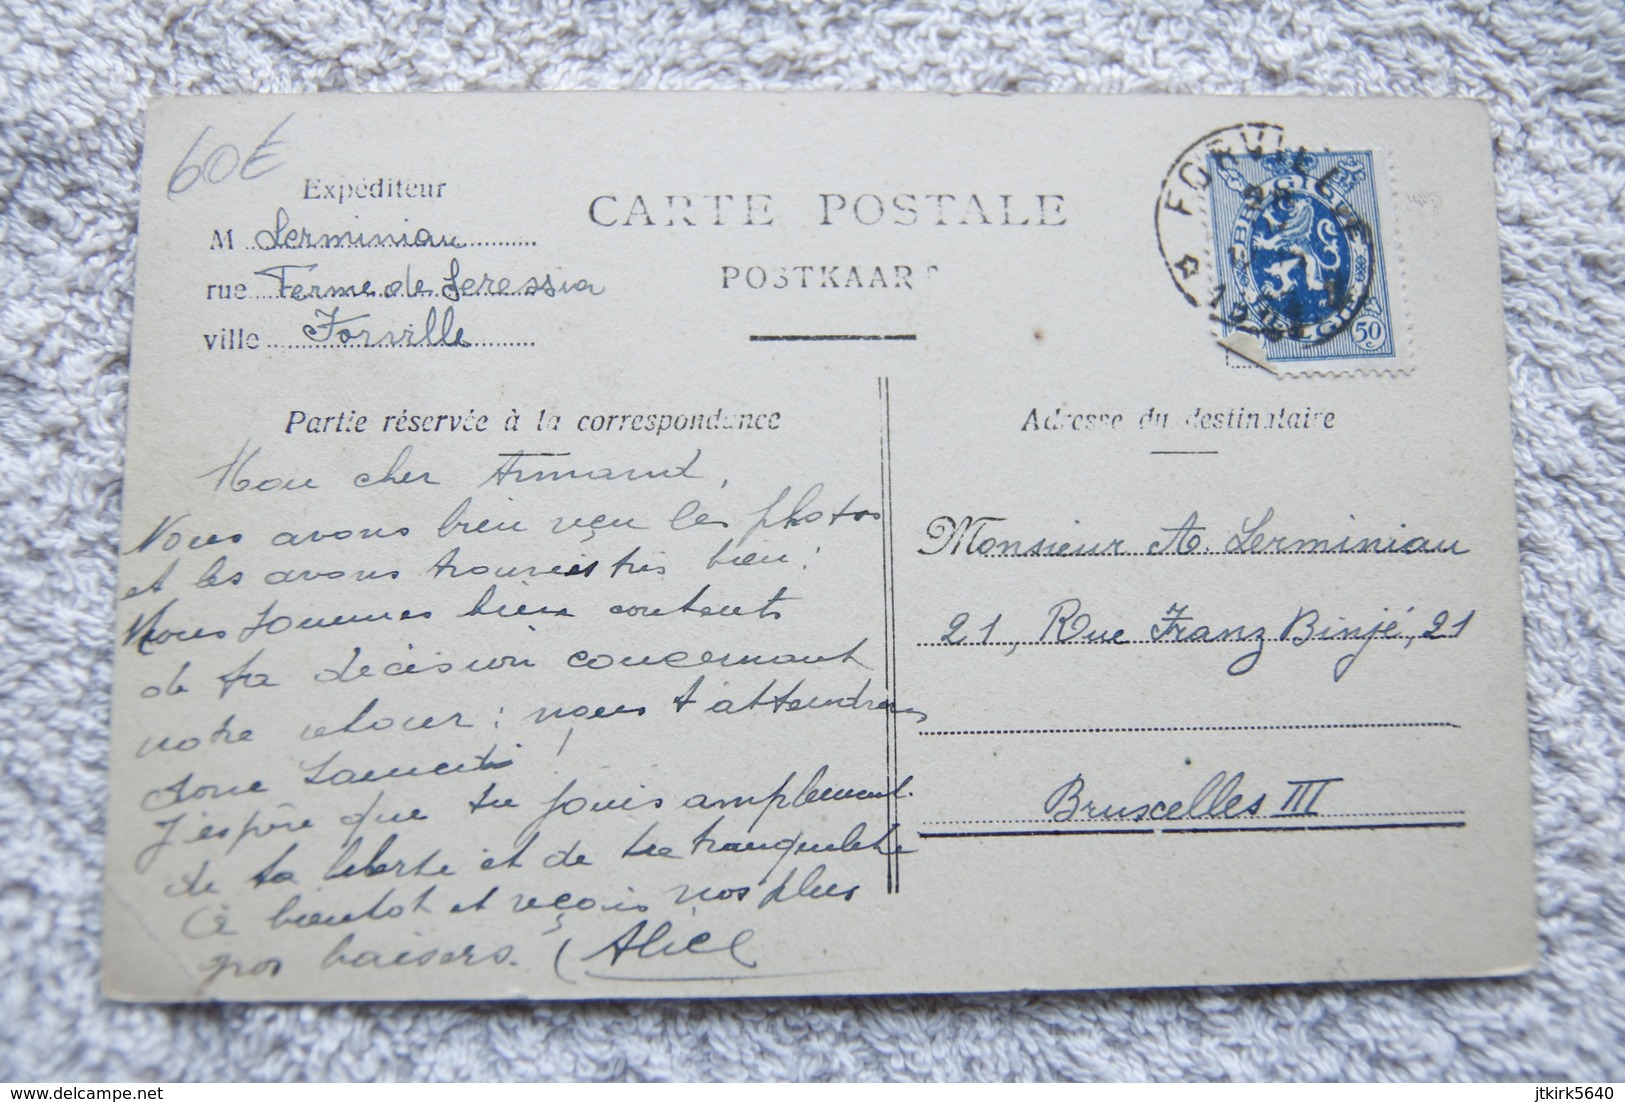 60€
Expéditeur
M Lerminiau
rue Ferme de Seressia
ville Forville
CARTE POSTALE
POSTKAAR
FORVILLE
BELGIQUE
BELGIE
50
Partie réservée à la correspondance
Adresse du destinataire
Mon cher Armand,
Nous avons bien reçu les photos
et les avons trouvées très bien!
Nous sommes bien contents
de ta décision concernant
notre retour: nous t'attendrons
donc samedi!
J'espère que tu jouis amplement
de ta liberté et de ta tranquilité
à bientôt et reçois nos plus
gros baisers. Alice
Monsieur A. Lerminiau
21, Rue Franz Binjé, 21
Bruxelles III
delcampe.net
jtkirk5640